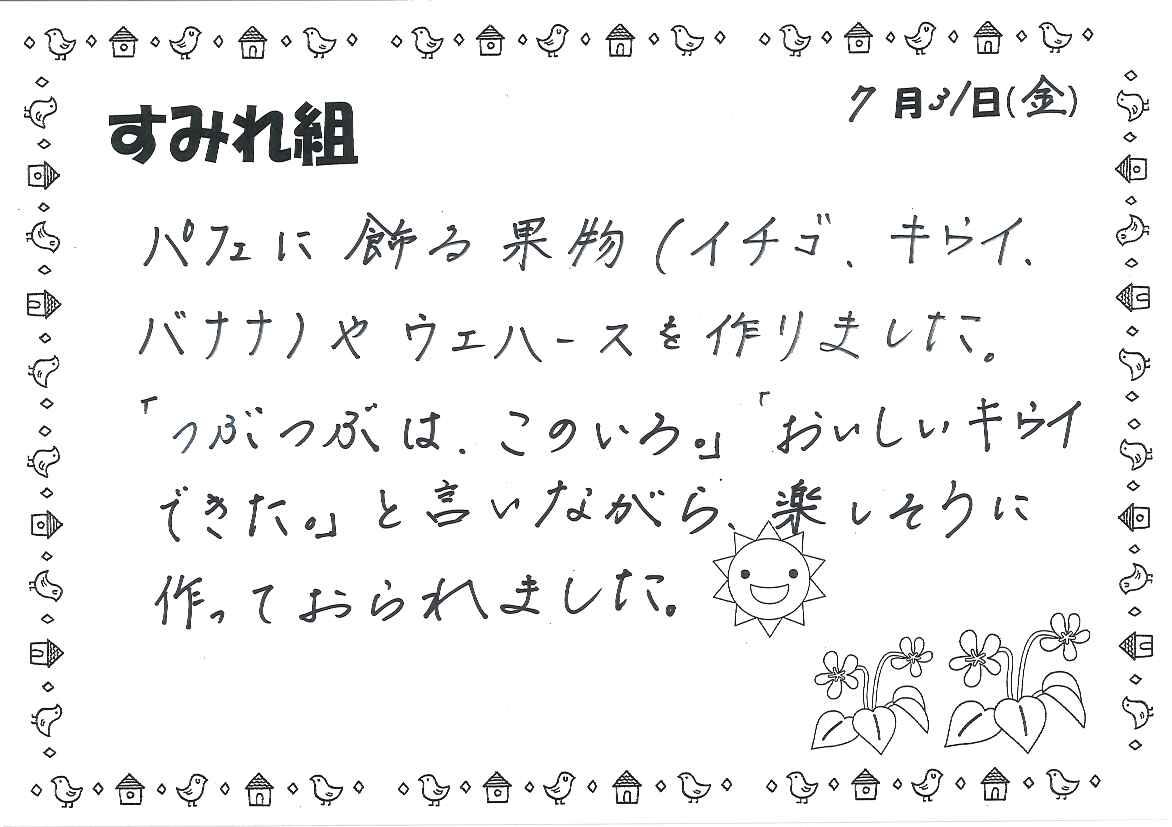 すみれ組
7月31日(金)
パフェに飾る果物(イチゴ、キウイ、
バナナ)やウエハースを作りました。
「つぶつぶは、このいろ。」「おいしいキウイ
できた。」と言いながら、楽しそうに
作っておられました。